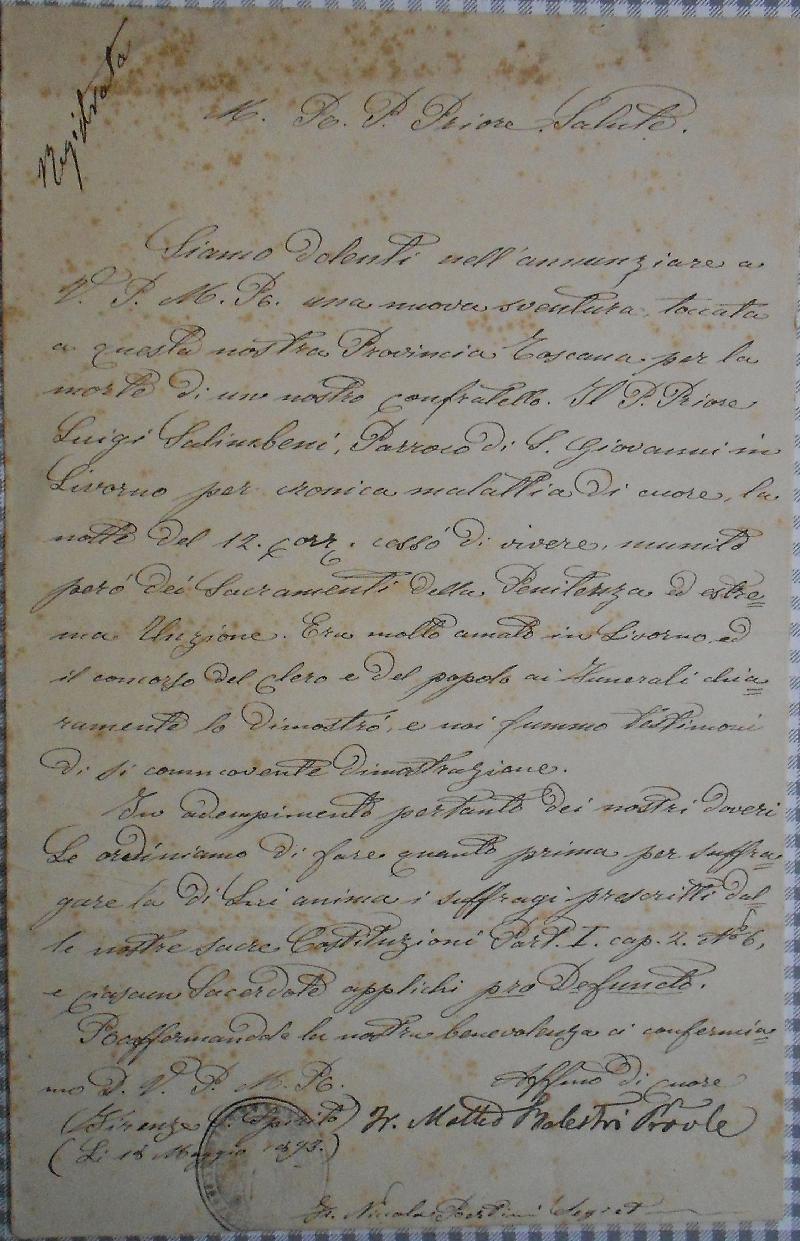 Registrata
M. R. P. Priore Salute.
Siamo dolenti nell'annunziare a
V. P. M. R. una nuova sventura toccata
a questa nostra Provincia Toscana per la
morte di un nostro confratello. Il P. Priore
Luigi Salimbeni, Parroco di S. Giovanni in
Livorno per cronica malattia di cuore, la
notte del 12. corr. cessó di vivere, munito
peró dei Sacramenti della Penitenza ed estre=
ma Unzione. Era molto amato in Livorno, ed
il concorso del clero e del popolo ai Funerali chia=
ramente lo dimostró, e noi fummo testimoni
di sì commovente dimostrazione.
In adempimento pertanto dei nostri doveri
Le ordiniamo di fare quanto prima per suffra=
gare la di Lui anima i suffragi prescritti dal
le nostre sacre Costituzioni Part. I. cap. 2. N° 6,
e ciascun Sacerdote applichi pro Defuncto.
Raffermandole la nostra benevolenza ci confermia=
mo D. V. P. M. R.
Affmo di cuore
(Firenze S. Spirito)
Fr. Matteo Balestri Prov̄le
(Li Maggio
Fr. Nicola Segret